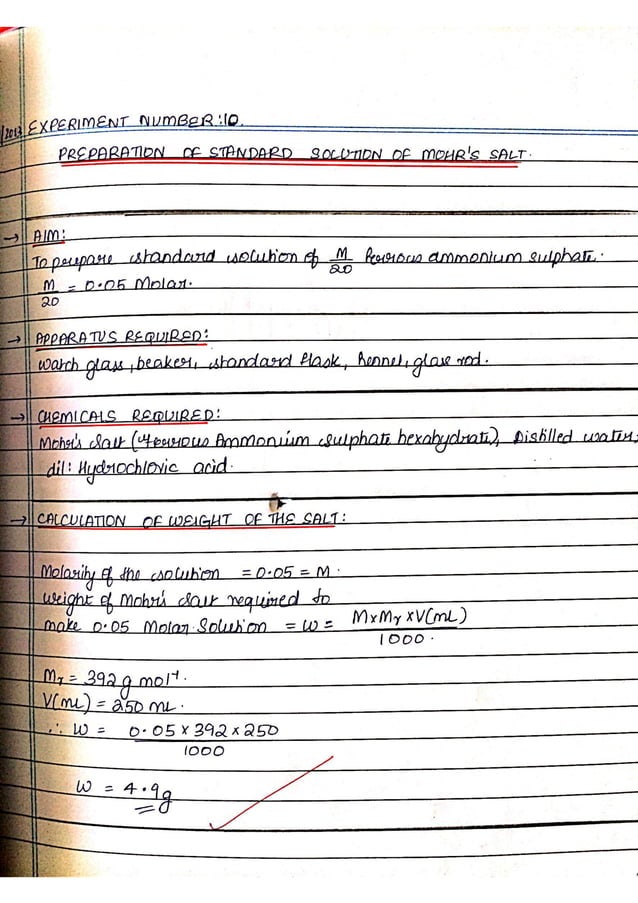 /2013 EXPERIMENT NUMBER:10.
PREPARATION OF STANDARD SOLUTION OF MOHR'S SALT.
→ AIM:
To prepare standard solution of M/20 ferrous ammonium sulphate.
M/20 = 0.05 Molar.
→ APPARATUS REQUIRED:
Watch glass, beaker, standard flask, funnel, glass rod.
→ CHEMICALS REQUIRED:
Mohr's salt (Ferrous Ammonium sulphate hexahydrate), Distilled water,
dil: Hydrochloric acid.
→ CALCULATION OF WEIGHT OF THE SALT:
Molarity of the solution = 0.05 = M.
weight of Mohr's salt required to
make 0.05 Molar Solution = W = M×Mr×V(mL)/1000.
Mr = 392 g mol⁻¹.
V(mL) = 250 mL.
∴ W = 0.05 × 392 × 250/1000
W = 4.9g